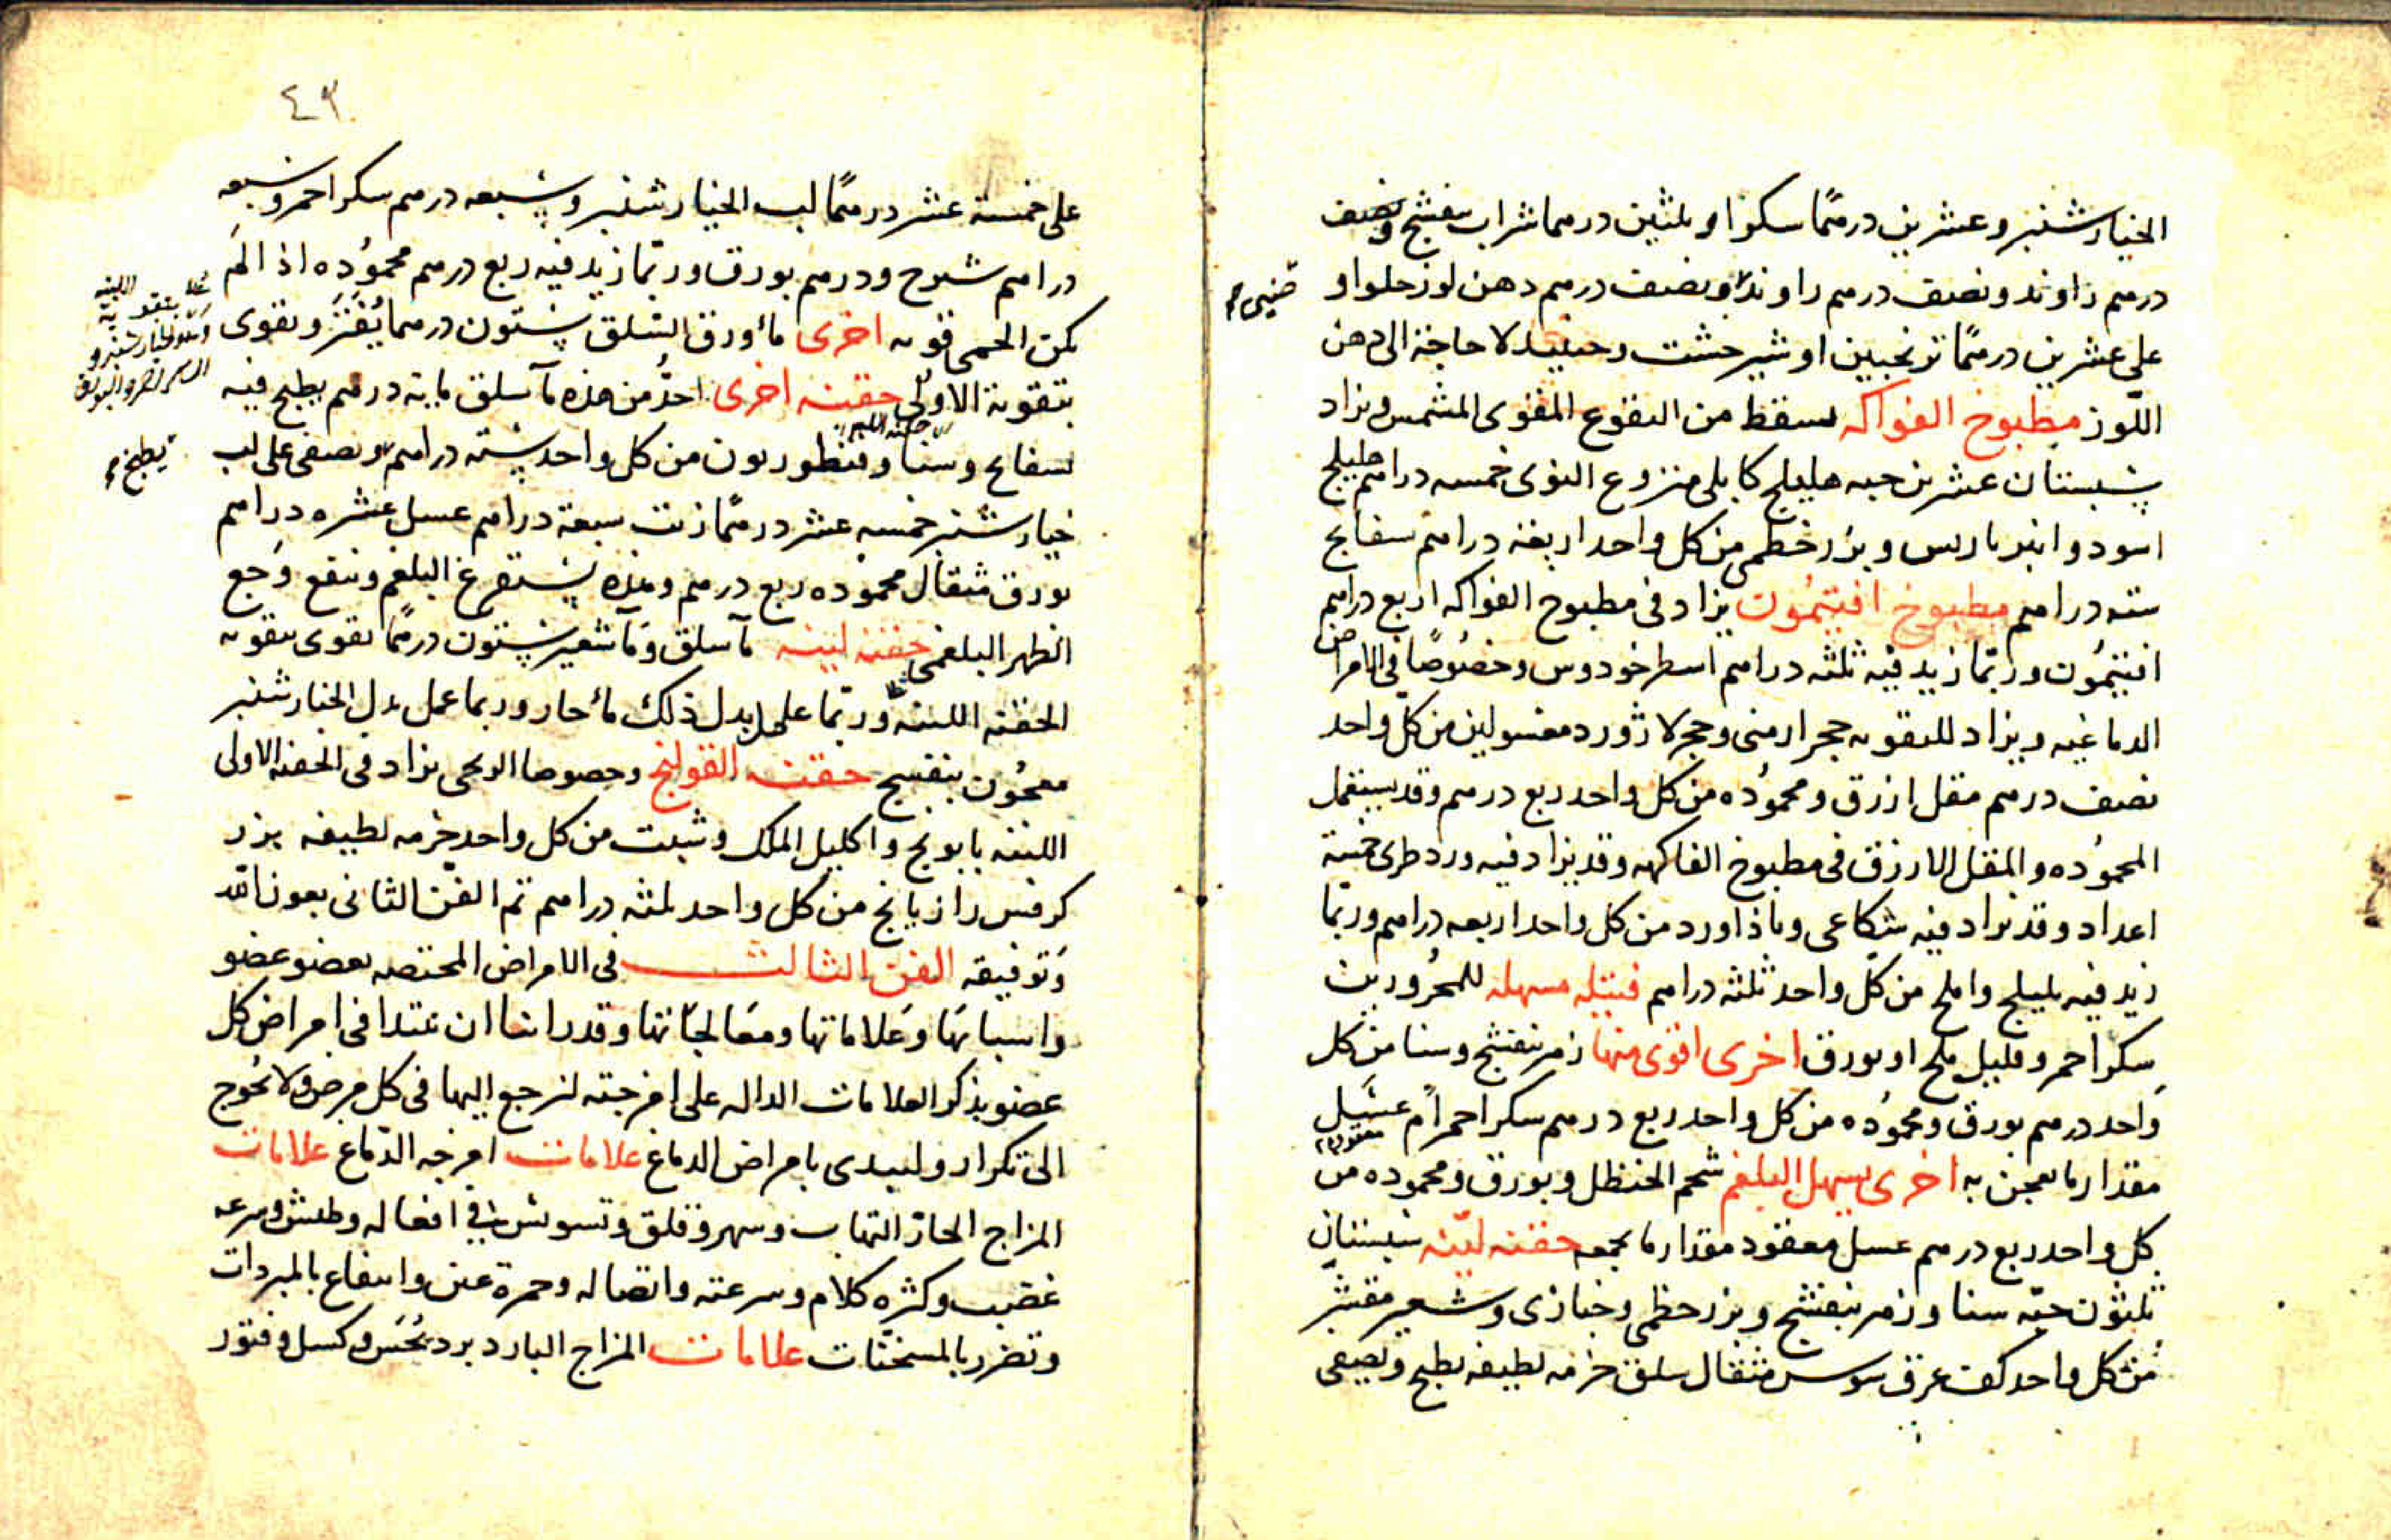 الخيارشنبر وعشرين درهمًا سكرا او ثلثين درهما شراب بنفشج ونصف
درهم راوند ونصف درهم راوند ونصف درهم دهن لوز حلو او
صيني
على عشرين درهمًا ترنجبين او شيرخشت وحينيد لا حاجة الى دهن
اللّوز مطبوخ الفواكه يسقط من النقوع المقوى المشمس ويزاد
سبستان عشرين حبه هليلج كابلى منزوع النوى خمسه دراهم هليلج
اسود وانبرباريس وبزر خطمى من كل واحد اربعة دراهم بسفايج
سته دراهم مطبوخ افيتمُون يزاد فى مطبوخ الفواكه اربع دراهم
افيتمُون وربّما زيد فيه ثلثه دراهم اسطوخودوس وخصُوصًا فى الامراض
الدماغيه ويزاد للتقويه حجر ارمنى وحجر لازورد مغسولين من كلّ واحد
نصف درهم مقل ازرق ومحمُوده من كل واحد ربع درهم وقد يستعمل
المحمُوده والمقل الازرق فى مطبوخ الفاكهه وقد يزاد فيه ورد طرى خمسة
اعداد وقد يزاد فيه شكاعى وباذاورد من كل واحد اربعه دراهم وربّما
زيد فيه بليلج واملج من كلّ واحد ثلثه دراهم فتيله مسهله للمحرُورين
سكر احمر وقليل ملح او بورق اخرى اقوى منها زهر بنفشج وسنا من كل
وَاحد درهم بورق ومحمُوده من كل واحد ربع درهم سكر احمر امْ عسَل
معقود
مقدار ما يعجن به اخرى يسهل البلغم شحم الحنظل وبورق ومحموده من
كل واحد ربع درهم عسل معقود مقدار ما يجمعه حقنه ليّنه سبستان
ثلثون حبّه سنا وزهر بنفشج وبزر خطمى وخبازى وشعير مقشر
من كل واحد كف عرق سوس مثقال سلق حزمه لطيفه يطبخ ويصفى
٤٩
على خمسة عشر درهمًا لب الخيارشنبر وسبعه درهم سكر احمر وسبعه
دراهم شيرج ودرهم بورق وربّما زيد فيه ربع درهم محمُوده اذا لم
تكن الحمى قويه اخرى ماء ورق السلق ستون درهما يُفَتَّر ويقوى
بتقوية الاولى حقنه اخرى احدُّ من هذه مآ سلق مايه درهم يطبخ فيه
بسفايج وسنا وقنطوريون من كل واحد سته دراهم ويصفى على لب
يطبخ
خيارشنبر خمسه عشر درهمًا زيت سبعة دراهم عسل عشره دراهم
بورق مثقال محموده ربع درهم وهذه يستفرغ البلغم وينفع وَجع
الظهر البلغمى حقنه لينه مآ سلق ومآ شعير ستون درهمًا يقوى بتقويه
الحقنه اللينه وربّما عمل بدل ذلك ماء حار وربما عمل بدل الخيارشنبر
معجُون بنفسج حقنه القولنج وخصوصا الريحى يزاد فى الحقنه الاولى
اللينه بابونج واكليل الملك وشبت من كل واحد حزمه لطيفه بزر
كرفس رازيانج من كل واحد ثلثه دراهم تم الفنّ الثانى بعون الله
وَتوفيقه الفن الثالث فى الامراض المختصه بعضو عضو
واسبابهَا وَعَلاماتها ومعَالجَاتها وقد راينا ان نبتدا فى امراض كل
عضو بذكر العلامات الداله على امزجته لنرجع اليها فى كل مرض ولا نحُوج
الى تكرار ولنبدى بامراض الدماغ علامات امزجه الدّماغ علامات
المزاج الحارّ التهاب وسهر وقلق وتسويش فى افعاله وطيش وسرعه
غضب وكثره كلام وسرعته واتصاله وحمرة عين وانتفاع بالمبردات
وتضرر بالمسخّنات علامات المزاج البارد برد مُحَسَّ وكسل وفتور